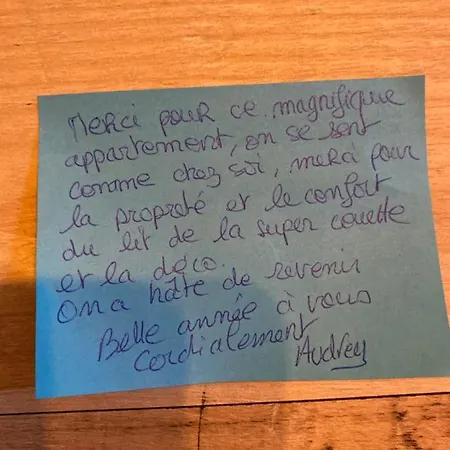 Merci pour ce magnifique
appartement, on se sent
comme chez soi, merci pour
la propreté et le confort
du lit de la super couette
et la déco.
On a hâte de revenir
Belle année à vous
Cordialement
Audrey